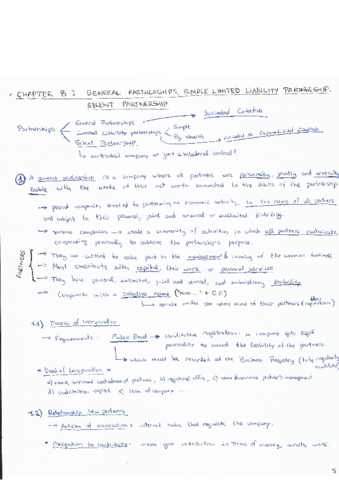 • CHAPTER 8: GENERAL PARTNERSHIPS, SIMPLE LIMITED LIABILITY PARTNERSHIP.
SILENT PARTNERSHIP
Partnerships
General Partnerships → Sociedad Colectiva
Limited Liability partnerships
Simple
By shares →
Silent Partnership.
↳ contractual company or just a bilateral contract?
1 A general partnership is a company where all partners are personally, jointly and
liable with the whole of their net worth to the debts of the partnership
→ personal companies devoted to performing an economic activity, in the name of all partners
and subject to their personal, joint and several or unlimited liability.
→ companies → create a community of activities in which all partners participate
co-operating personally to achieve the partnership's purpose.
PARTNERS
→ They are entitled to take part in the management & running of the business
→ Must contribute with capital, their work or personal services
→ They have personal, unlimited, joint and several, and subsidiary liability
→ Companies with a collective name
→ operate under the name of their partners (reputation)
1.1) Process of Incorporation
→ Requirements: Public Deed → constitutive registration: in company gets legal
personality to the liability of the partners.
↳ which must be recorded at the Business Registry
* Deed of Incorporation =
a) name, surname of partners, b) registered office, c)
d) contribution capital e)
1.2) Relationship btw partners
→ Articles of association: internal rules that regulate the company.
* Obligation to contribute: make your contribution in terms of money, assets, work.
5